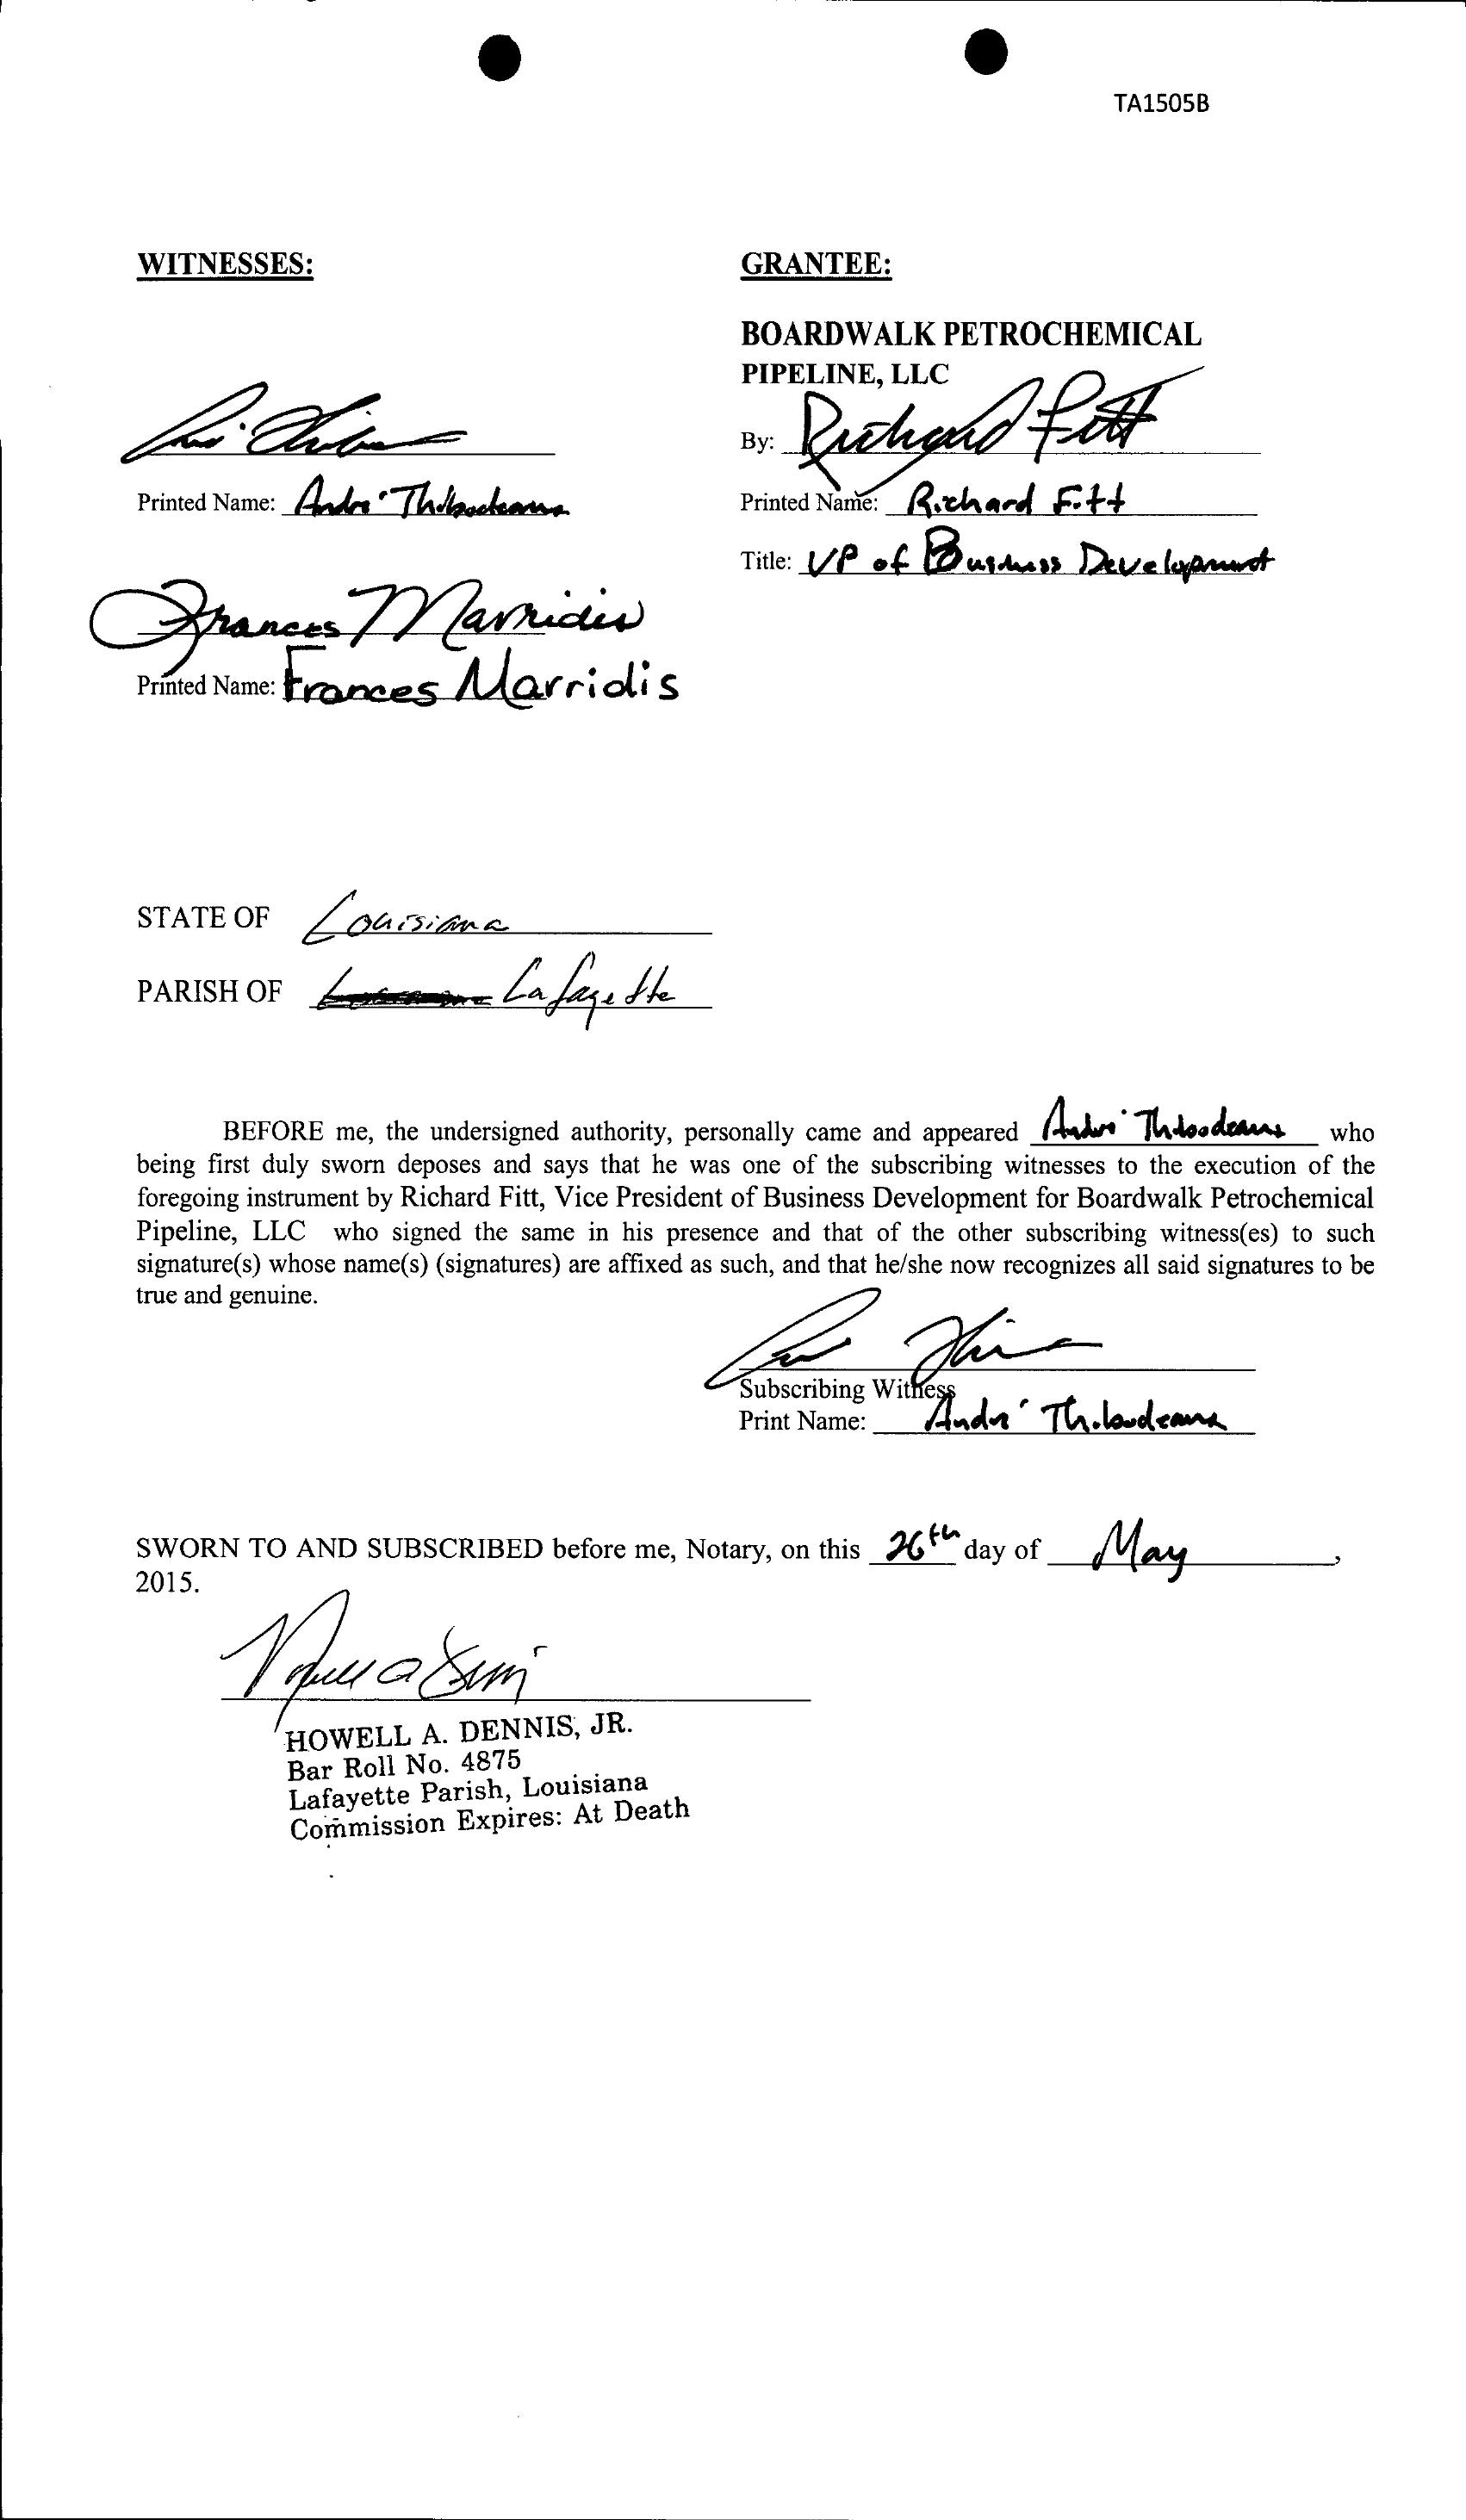 TA1505B
WITNESSES:
GRANTEE:
BOARDWALK PETROCHEMICAL
PIPELINE, LLC
By: Richard Fitt
Printed Name: Andre' Thibodeaux
Printed Name: Richard Fitt
Title: VP of Business Development
Frances Marridis
Printed Name: Frances Marridis
STATE OF Louisiana
PARISH OF Lafayette
BEFORE me, the undersigned authority, personally came and appeared Andre' Thibodeaux who
being first duly sworn deposes and says that he was one of the subscribing witnesses to the execution of the
foregoing instrument by Richard Fitt, Vice President of Business Development for Boardwalk Petrochemical
Pipeline, LLC who signed the same in his presence and that of the other subscribing witness(es) to such
signature(s) whose name(s) (signatures) are affixed as such, and that he/she now recognizes all said signatures to be
true and genuine.
Subscribing Witness
Print Name: Andre' Thibodeaux
SWORN TO AND SUBSCRIBED before me, Notary, on this 26th day of May,
2015.
HOWELL A. DENNIS, JR.
Bar Roll No. 4875
Lafayette Parish, Louisiana
Commission Expires: At Death